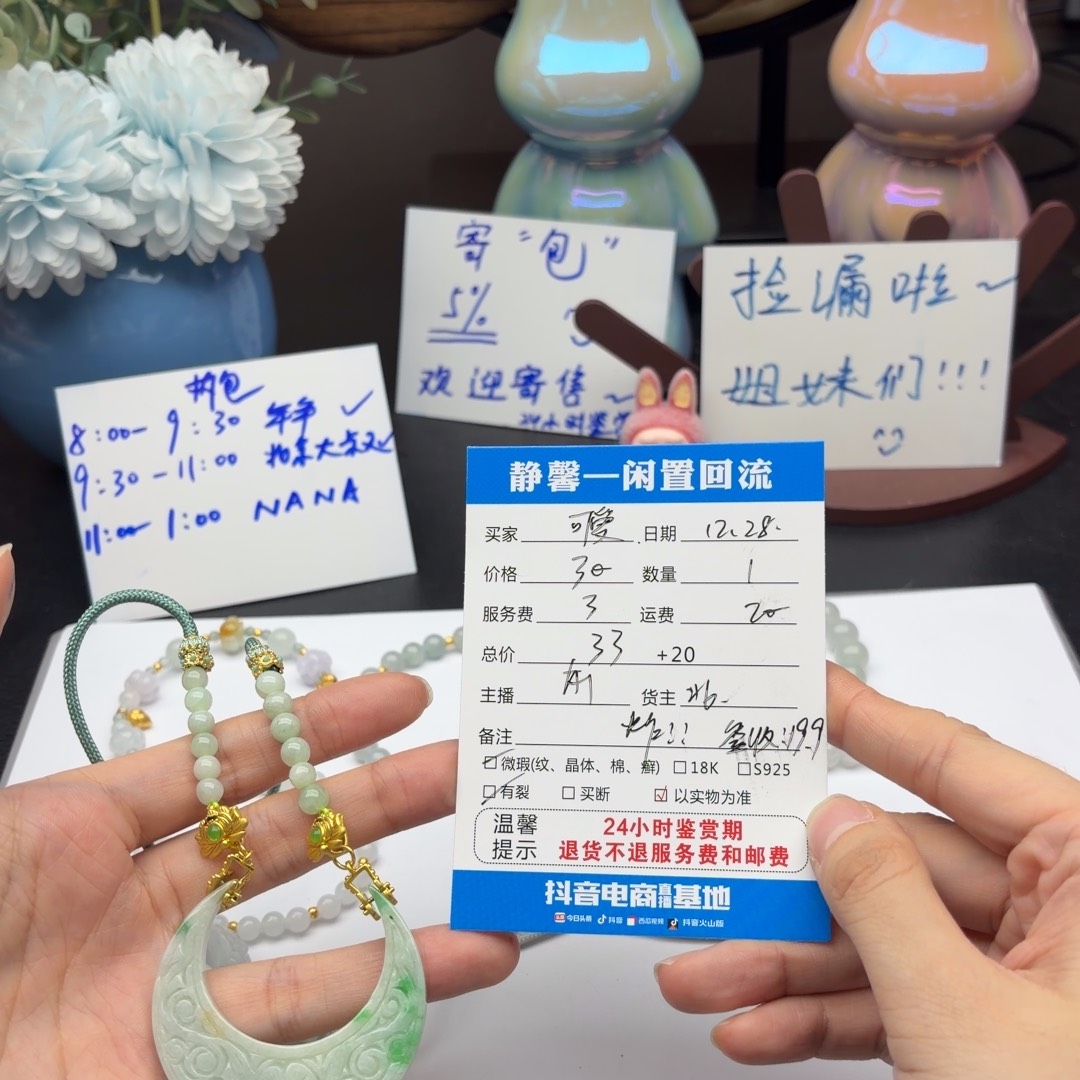 寄“包”
5%
欢迎寄售~
24小时鉴赏
捡漏啦~
姐妹们!!!
拘包
8:00- 9:30 年年 ✓
9:30-11:00
11:00- 1:00 NANA
静馨—闲置回流
买家 可爱 日期 12.28.
价格 30 数量 1
服务费 3 运费 20
总价 33 +20
主播 货主
备注 签收:199
微瑕(纹、晶体、棉、癣) □18K □S925
有裂 □买断 ☑以实物为准
温馨提示
24小时鉴赏期
退货不退服务费和邮费
抖音电商直播基地
今日头条 抖音 西瓜视频 抖音火山版